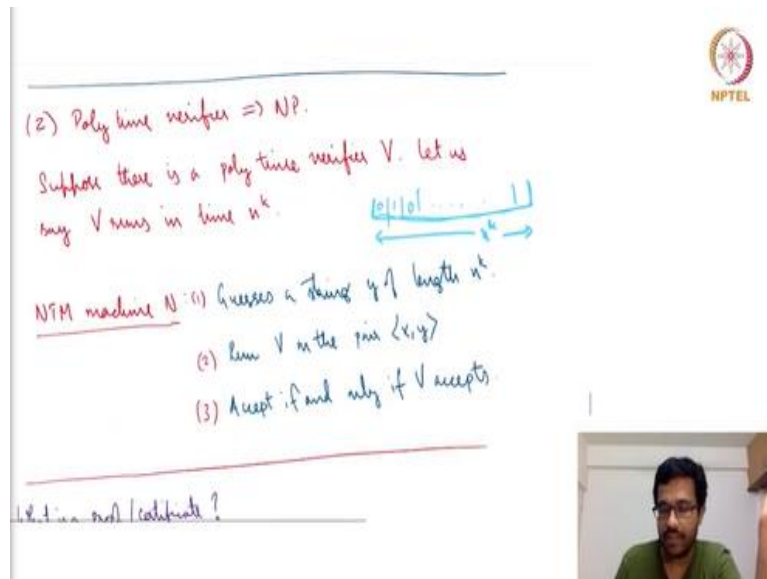 NPTEL
(2) Poly time verifier => NP.
Suppose there is a poly time verifier V. Let us
say V runs in time n^k.
0 1 0 . . . . . 1
n^k
NTM machine N : (1) Guesses a string y of length n^k.
(2) Run V on the pair <x, y>
(3) Accept if and only if V accepts.
proof / certificate ?